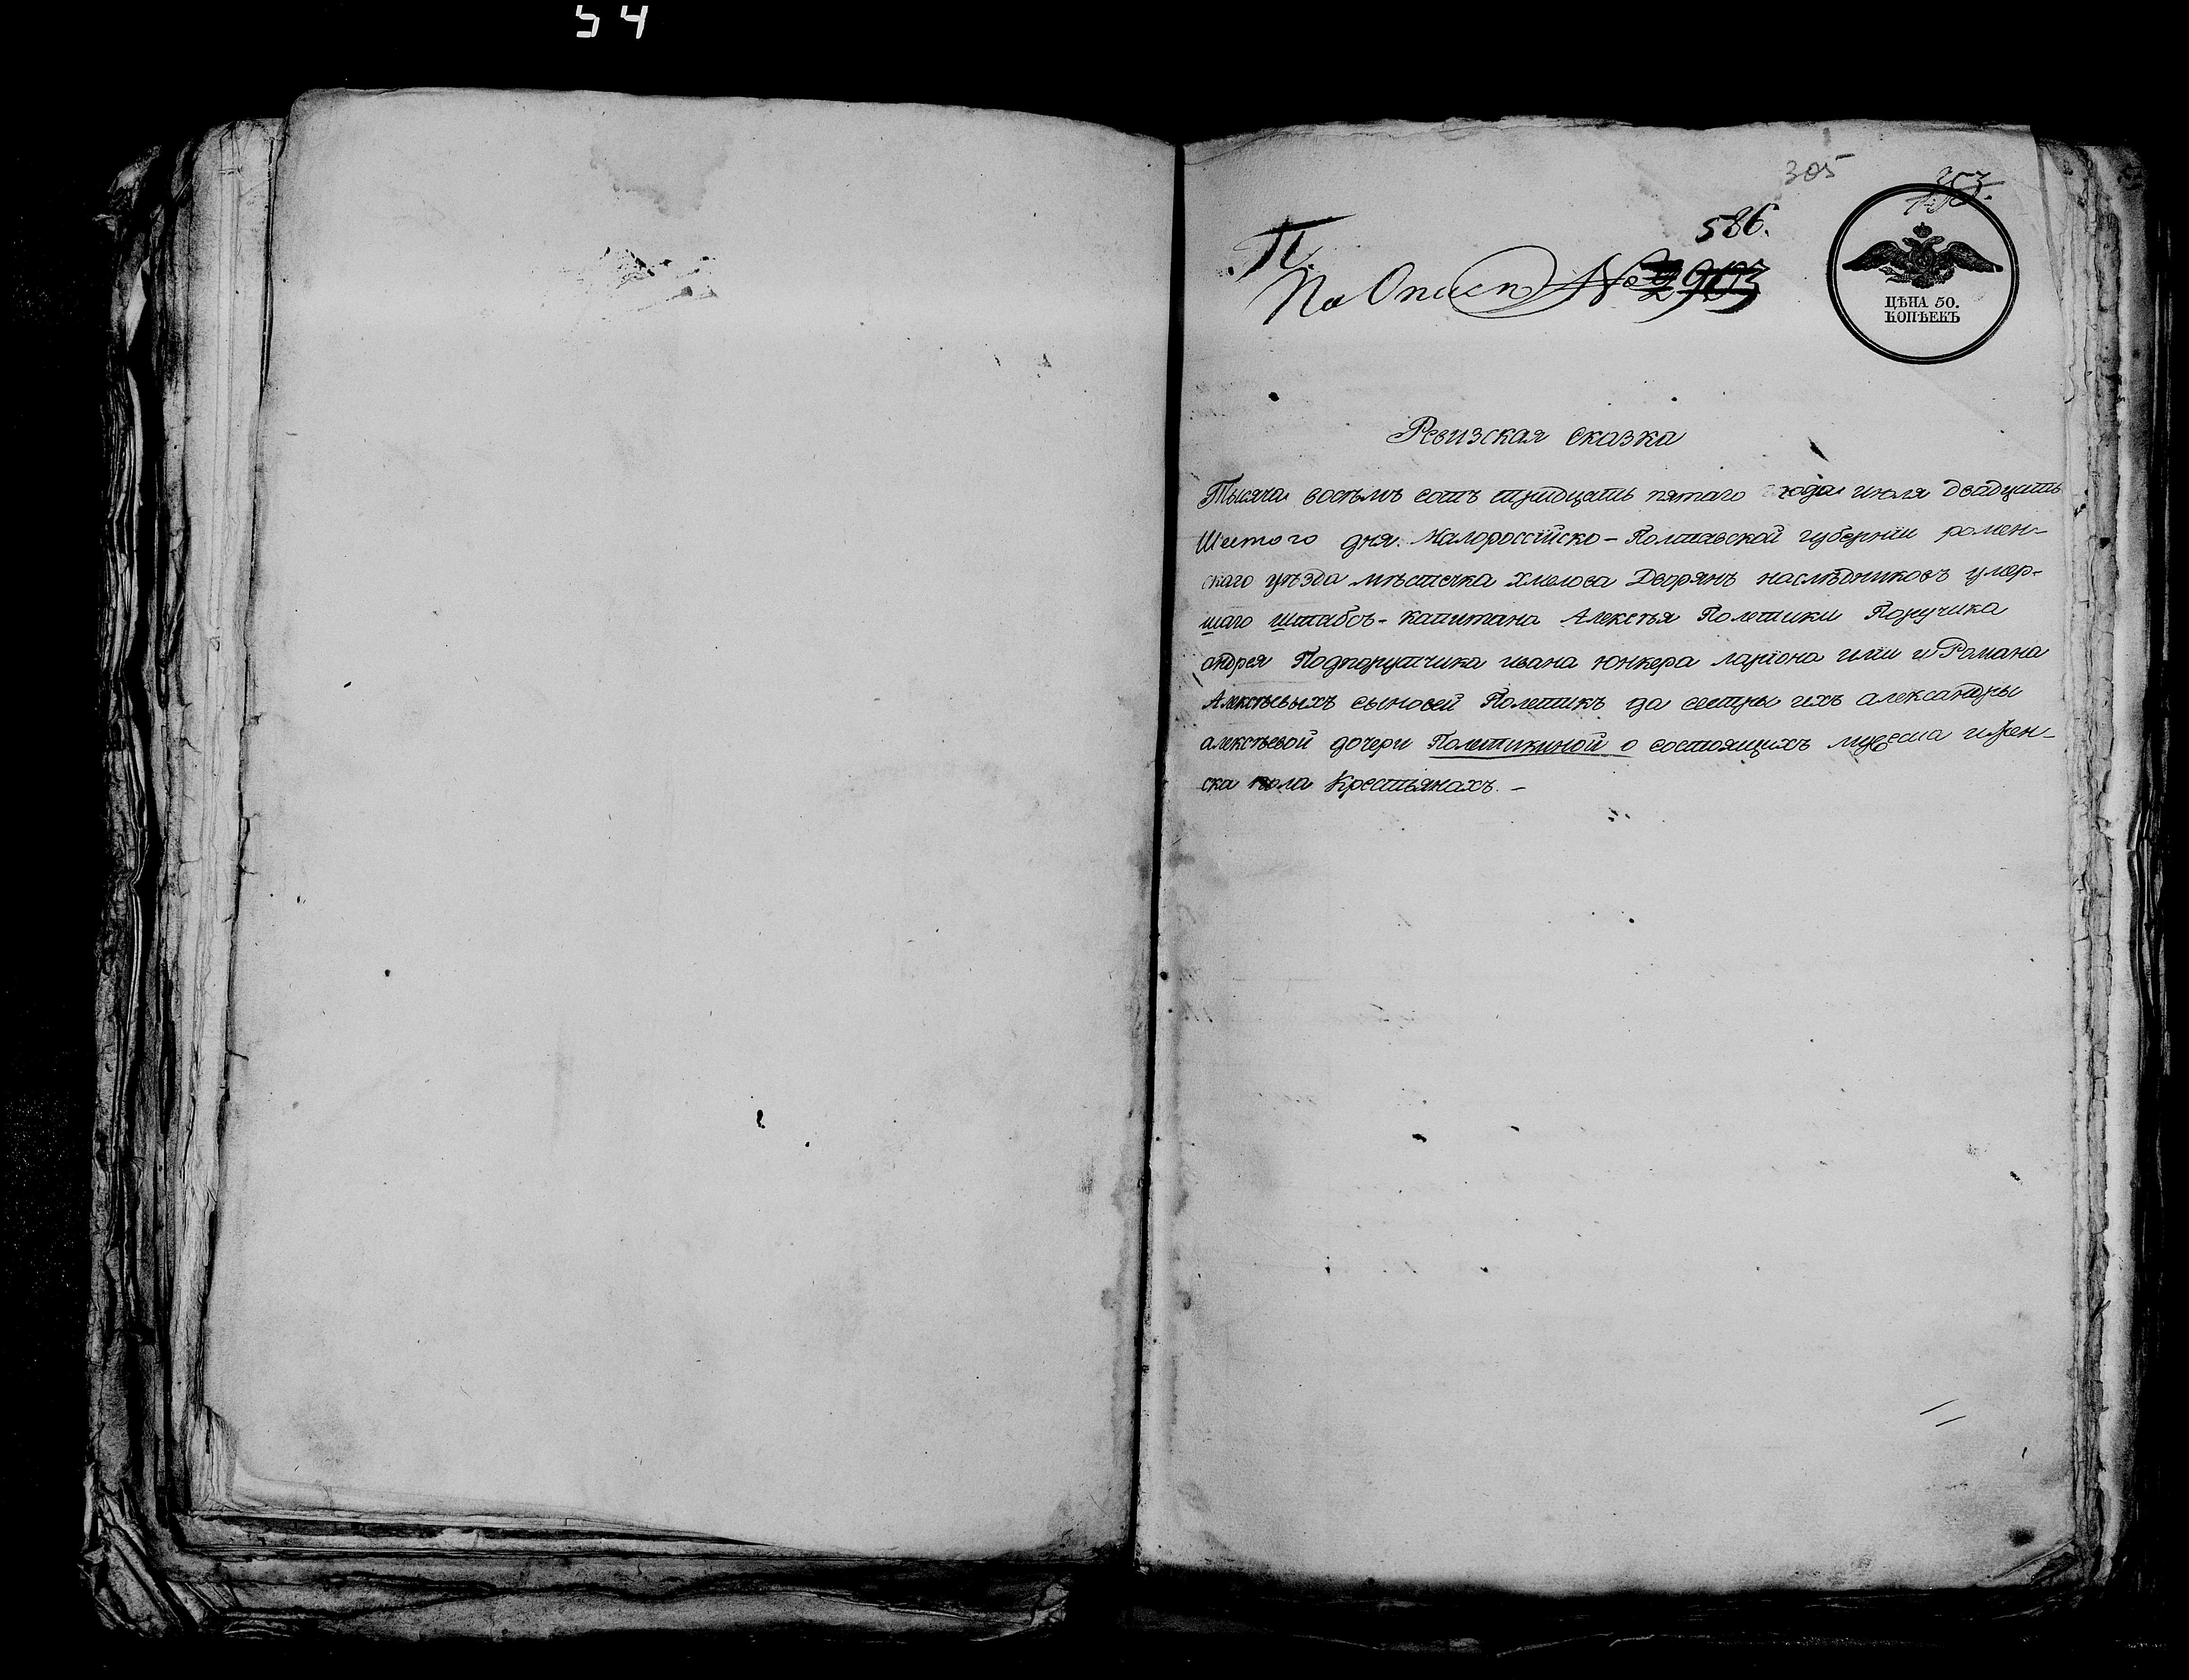 54
305
353.
586.
П.
По Описи № 2903
ЦѢНА 50.
КОПѢЕКЪ
Ревизская сказка
Тысяча восемъ сотъ тридцать пятаго года июля двадцать
Шестого дня. Малороссійско-Полтавской губерніи ромен-
скаго уѣзда мѣстечка хмелова Дворянъ наслѣдниковъ умер-
шаго штабсъ-капитана Алексѣя Полетики Поручика
андрея Подпорутчика ивана юнкера ларіона или и Романа
Алексѣевыхъ сыновей Полетикъ да сестры ихъ александры
алексѣевой дочери Полетикиной о состоящихъ мужеска и жен-
ска пола Крестьянахъ. -